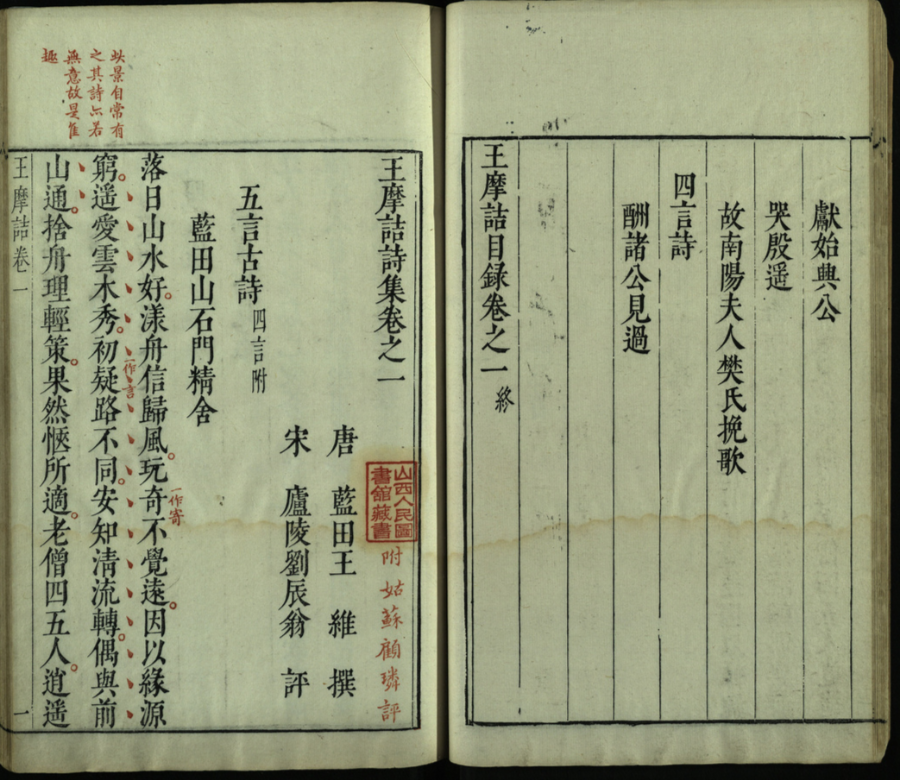 獻始典公
哭殷遥
故南陽夫人樊氏挽歌
四言詩
酬諸公見過
王摩詰目録卷之一終
王摩詰詩集卷之一
山西人民圖
書館藏書
附姑蘇顧璘評
唐 藍田王 維 撰
宋 廬陵劉辰翁 評
五言古詩四言附
藍田山石門精舍
落日山水好。漾舟信歸風。玩奇不覺遠。因以緣源
一作寄
窮。遥愛雲木秀。初疑路不同。安知清流轉。偶與前
一作言
山通。捨舟理輕策。果然愜所適。老僧四五人。逍遥
王摩詰卷一
一
此景自常有
之其詩亦若
無意故是佳
趣